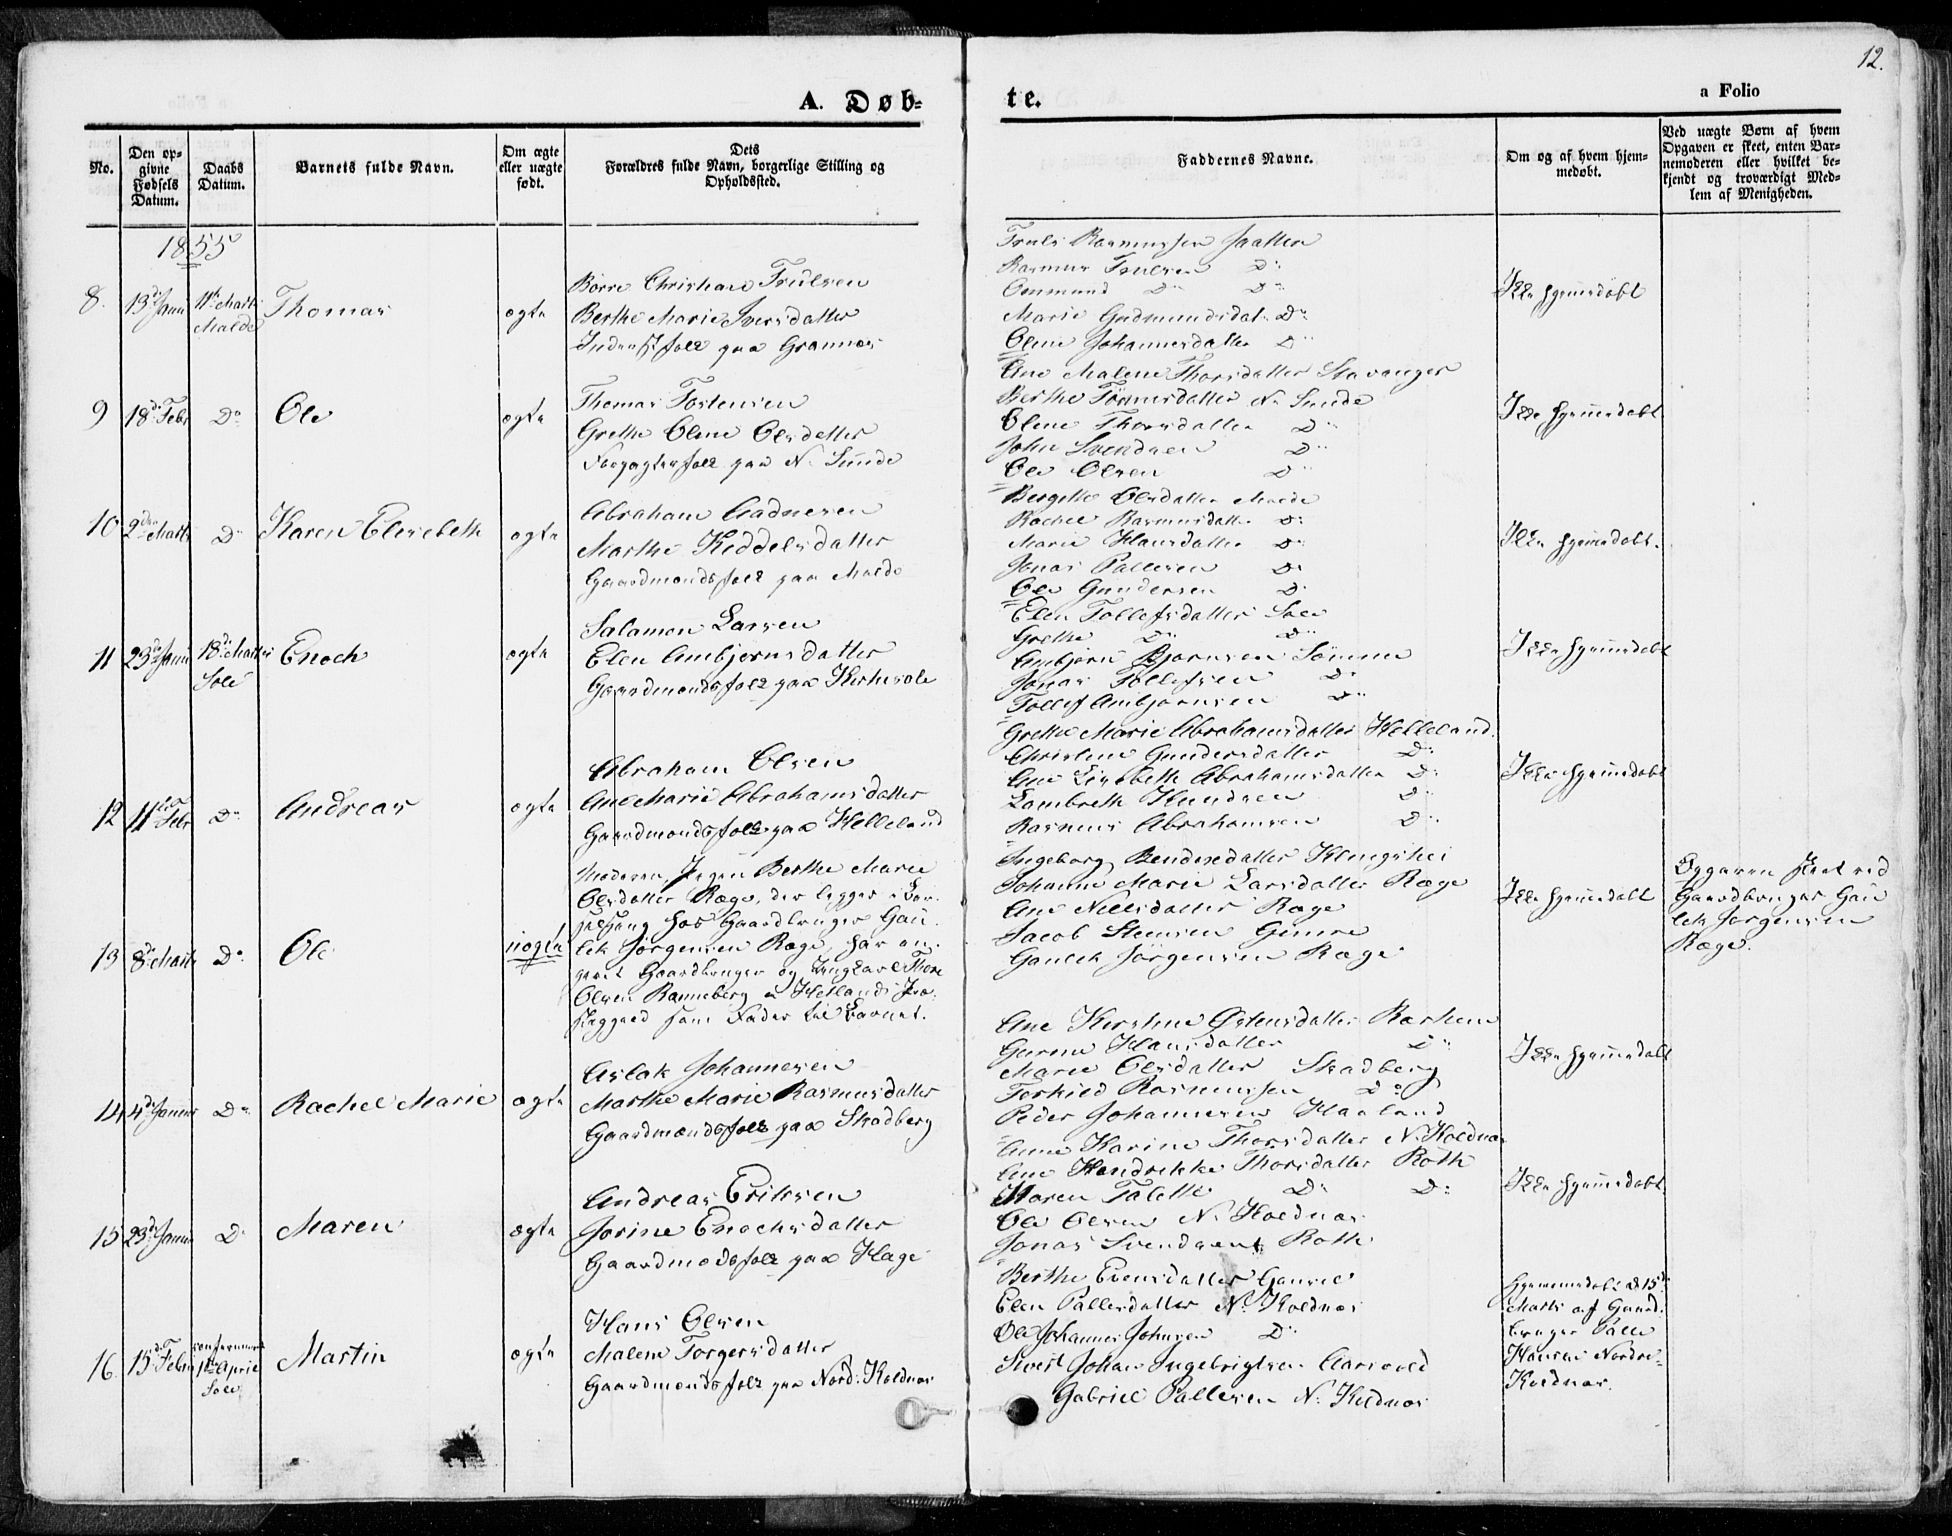 12.
A. Døb-
te.
a Folio
No.
Den op-
givne
Fødsels
Datum.
Daabs
Datum.
Barnets fulde Navn.
Om ægte
eller uægte
født.
Dets
Forældres fulde Navn, borgerlige Stilling og
Opholdssted.
Faddernes Navne.
Om og af hvem hjem-
medøbt.
Ved uægte Børn af hvem
Opgaven er skeet, enten Bar-
nemoderen eller hvilket be-
kjendt og troværdigt Med-
lem af Menigheden.
1855
8. 13de Janu 11te Marts Thomas ægte
Malde
Børre Christian Trulsen
Berthe Marie Iversdatter
Inderstfolk paa Grannæs
Truls Rasmussen Jaatten
Rasmus Trulsen Do
Ommund Do Do
Marie Gudmundsdat. Do
Olene Johannesdatter Do
Ikke hjemmedøbt
9 18de Febr Do Ole ægte
Thomas Tostensen
Grethe Olene Olsdatter
Forpagterfolk paa N. Sunde
Ane Malene Thorsdatter Stavanger
Berthe Tønnesdatter N. Sunde
Olene Thorsdatter Do
John Svendsen Do
Ole Olsen Do
Ikke hjemmedøbt
10 2den Marts Do Karen Elisebeth ægte
Abraham Aadnesen
Marthe Keddelsdatter
Gaardmandsfolk paa Malde
Bergitte Olsdatter Malde
Rachel Rasmusdatter Do
Marie Hansdatter Do
Jonas Pallesen Do
Ole Gundersen Do
Ikke hjemmedøbt.
11 23de Janu 18de Marts Enoch ægte
Sole
Salamon Larsen
Elen Ambjørnsdatter
Gaardmandsfolk paa Kirkesole
Elen Tollefsdatter Sole
Grethe Do Do
Ambjørn Bjørnsen Sømme
Jonas Tollefsen Do
Tollef Ambjørnsen Do
Ikke hjemmedøbt
12 11te Febr Do Andreas ægte
Abraham Olsen
Ane Marie Abrahamsdatter
Gaardmandsfolk paa Helleland
Grethe Marie Abrahamsdatter Helleland.
Christine Gundersdatter Do
Ane Lisebeth Abrahamsdatter Do
Lambreth Knudsen Do
Rasmus Abrahamsen Do
Ikke hjemmedøbt
13 8de Marts Do Ole uægte
Moderen, Pigen Berthe Marie
Olsdatter Ræge, der ligger i Bar-
selseng hos Gaardbruger Gau-
lek Jørgensen Ræge, har an-
givet Gaardbruger og Ungkarl Thore
Olsen Ranneberg i Hetlands Præ-
stegjeld som Fader til Barnet.
Ingeborg Bendixdatter Klingshei
Johanne Marie Larsdatter Ræge
Ane Nilsdatter Ræge
Jacob Steensen Gimre
Gaulek Jørgensen Ræge
Ikke hjemmedøbt
Opgaven skeet ved
Gaardbruger Gau
lek Jørgensen
Ræge.
14 4de Januar Do Rachel Marie ægte
Aslak Johannesen
Marthe Marie Rasmusdatter
Gaardmandsfolk paa Skadberg
Ane Kirstine Østensdatter Ræshem
Gurine Hansdatter Do
Marie Olsdatter Skadberg
Torkild Rasmussen Do
Peder Johannesen Haaland
Ikke hjemmedøbt
15 23de Janu Do Maren ægte
Andreas Eriksen
Jorine Enochsdatter
Gaardmandsfolk paa Hage
Anne Karine Thorsdatter N. Koldnæs
Ane Hendrikke Thorsdatter Roth
Karen Talette Do Do
Ole Olsen N. Koldnæs
Jonas Svendsen Roth
Ikke hjemmedøbt.
16. 15de Febru confirmeret Martin ægte
1ste April
Sole
Hans Olsen
Malene Torgersdatter
Gaardmandsfolk paa Nord. Koldnæs
Berthe Evensdatter Gausel
Elen Pallesdatter N. Koldnæs
Ole Johannes Johnsen Do
Sivert Johan Ingebrigtsen Aarsvold
Gabriel Pallesen N. Koldnæs
Hjemmedøbt d 15de
Marts af Gaard-
bruger Palle
Hansen Nordre-
Koldnæs.